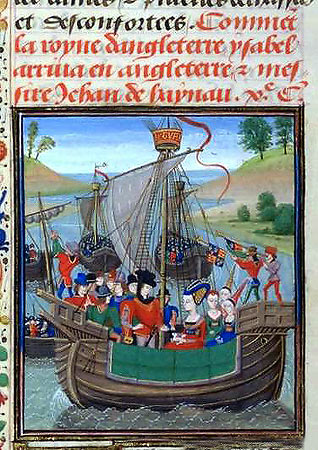 et desconfortees. Commēt
la royne dangleterre ysabel
arriua en angleterre & mes
sire Jehan de haynau. C